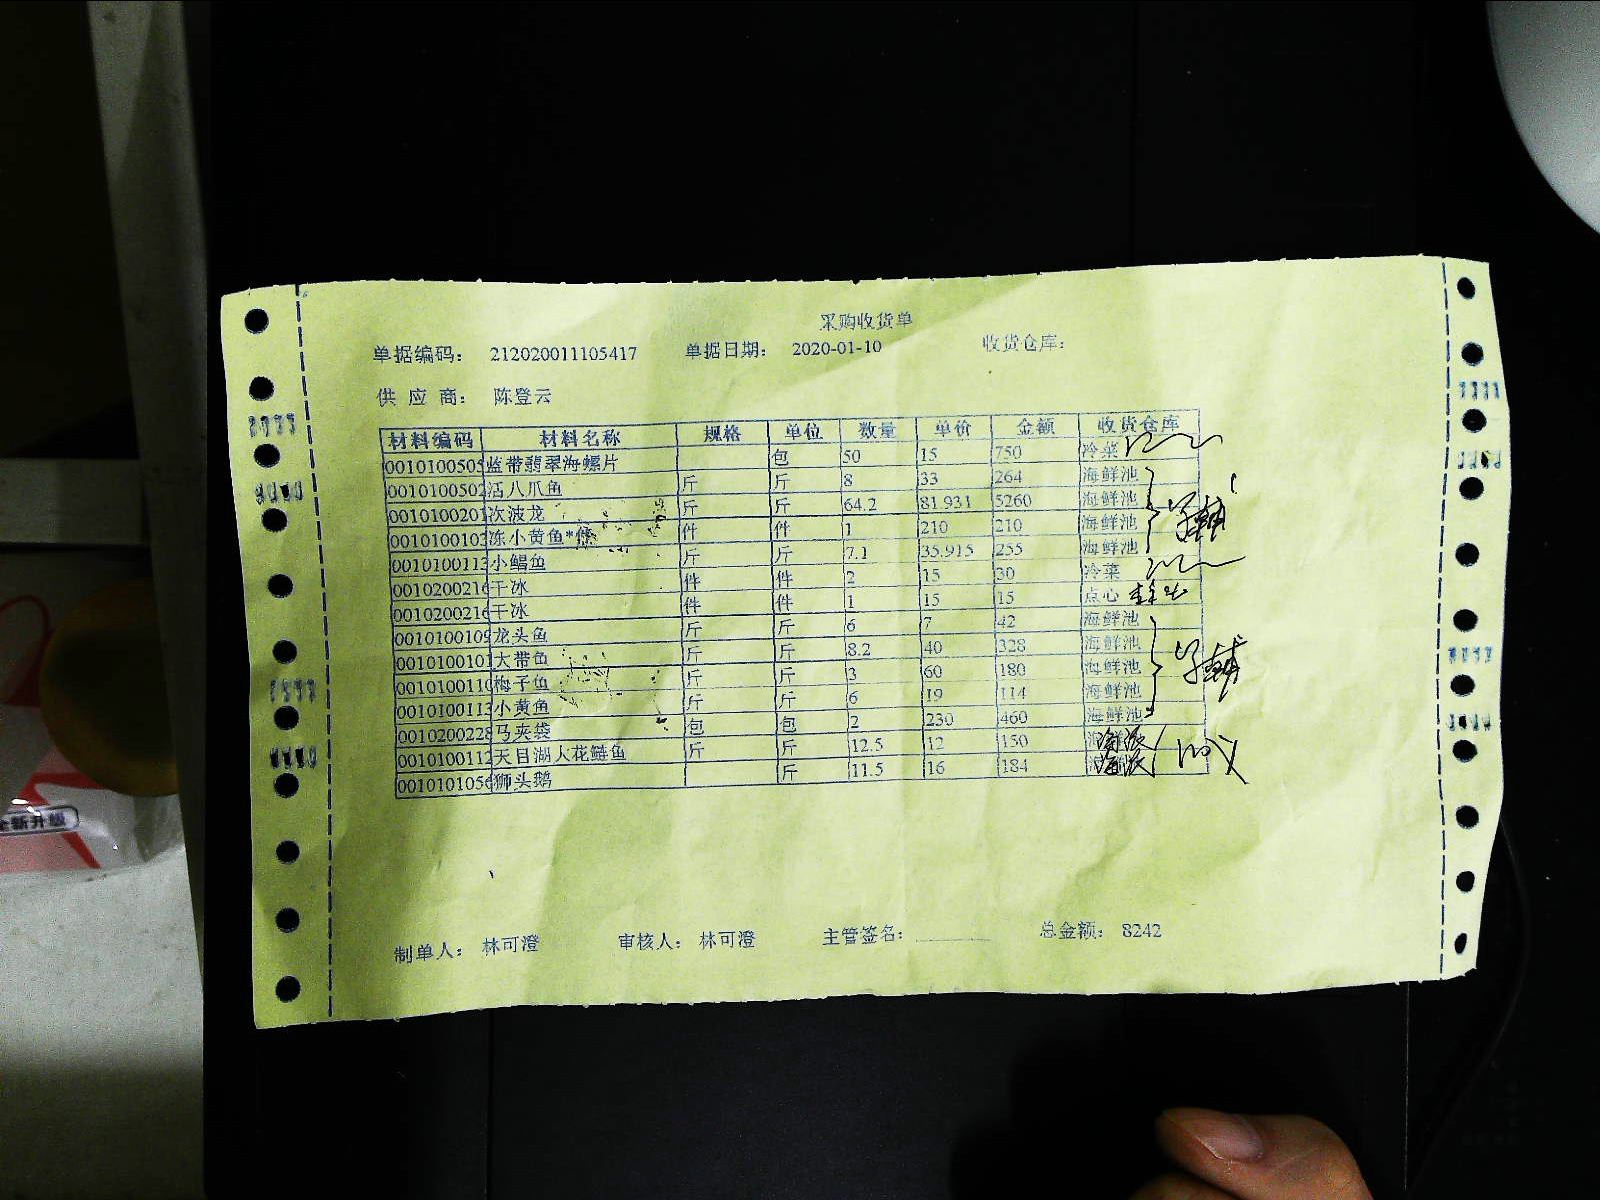 采购收货单
单据编码： 212020011105417 单据日期： 2020-01-10 收货仓库：
供 应 商： 陈登云
材料编码 材料名称 规格 单位 数量 单价 金额 收货仓库
0010100505 蓝带翡翠海螺片 包 50 15 750 冷菜
0010100502 活八爪鱼 斤 斤 8 33 264 海鲜池
0010100201 次波龙 斤 斤 64.2 81.931 5260 海鲜池
0010100103 冻小黄鱼*件 件 件 1 210 210 海鲜池
0010100113 小鲳鱼 斤 斤 7.1 35.915 255 海鲜池
0010200216 干冰 件 件 2 15 30 冷菜
0010200216 干冰 件 件 1 15 15 点心
0010100109 龙头鱼 斤 斤 6 7 42 海鲜池
0010100101 大带鱼 斤 斤 8.2 40 328 海鲜池
0010100110 梅子鱼 斤 斤 3 60 180 海鲜池
0010100113 小黄鱼 斤 斤 6 19 114 海鲜池
0010200228 马夹袋 包 包 2 230 460 海鲜池
0010100112 天目湖大花鲢鱼 斤 斤 12.5 12 150
0010101056 狮头鹅 斤 11.5 16 184
制单人： 林可澄 审核人： 林可澄 主管签名： 总金额： 8242
全新升级